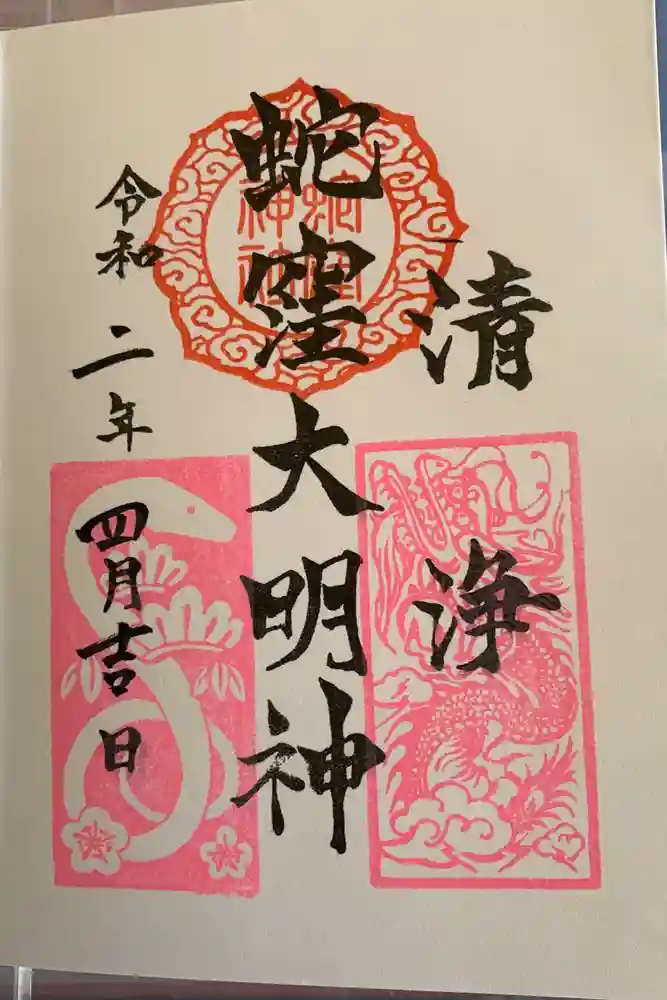 清浄
蛇窪大明神
令和二年四月吉日
蛇窪
神社